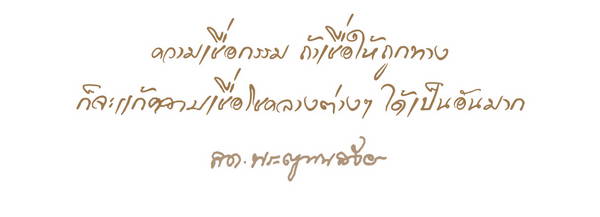 ความเชื่อกรรม ถ้าเชื่อให้ถูกทาง
ก็จะแก้ความเชื่อโชคลางต่างๆ ได้เป็นอันมาก
สต. พระญาณสังวร